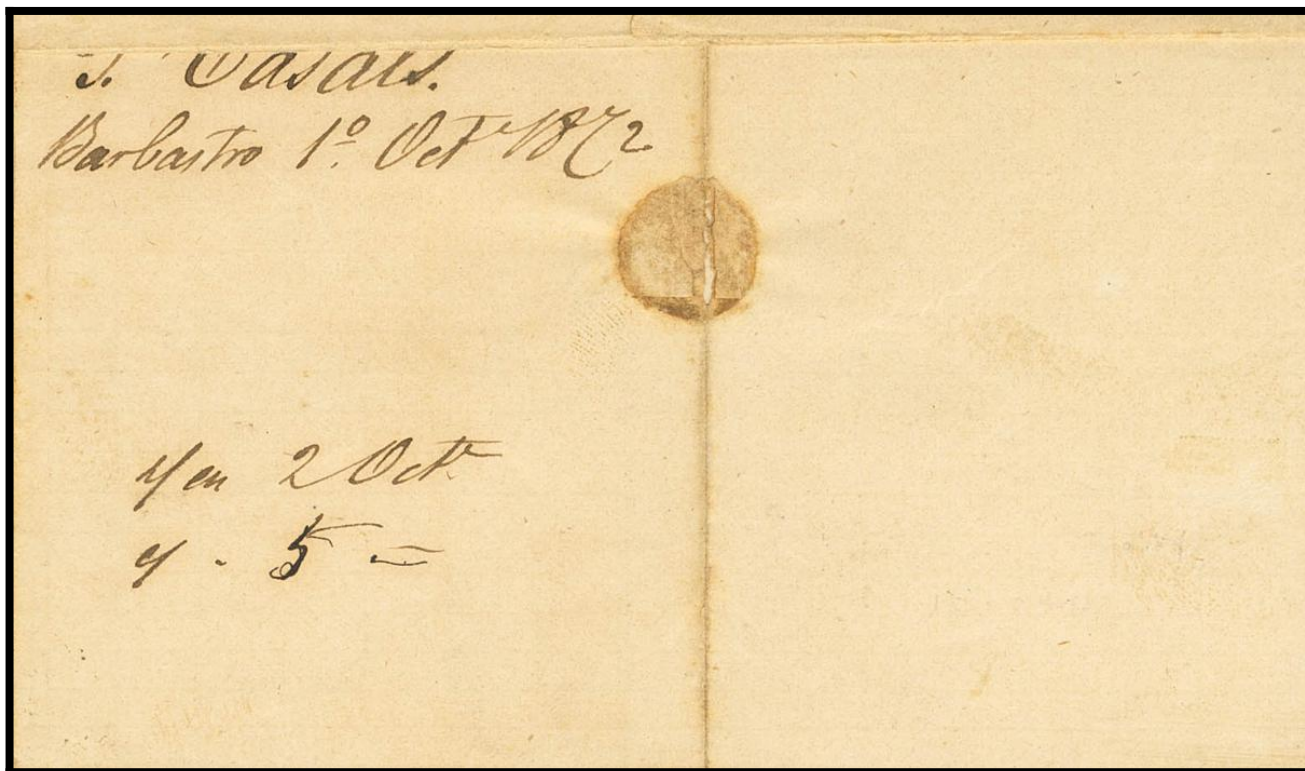 J. Casals.
Barbastro 1º. Octe 1872
y en 2 Octe
y . 5 =